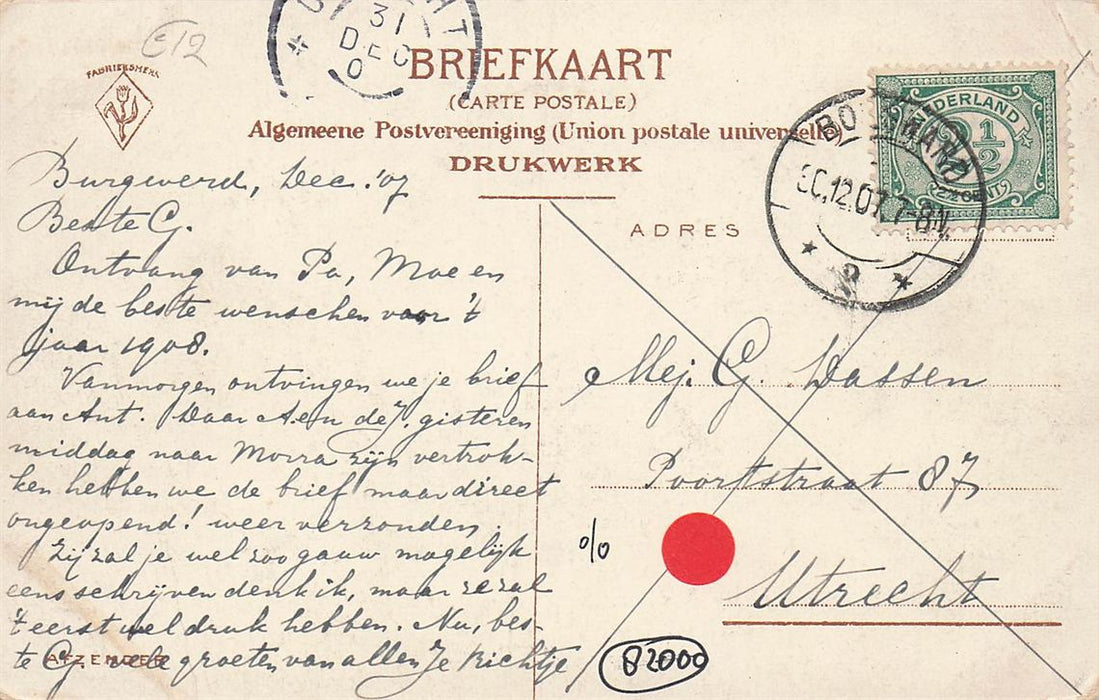 E12
FABRIEKSMERK
31
DEC
0
BRIEFKAART
(CARTE POSTALE)
Algemeene Postvereeniging (Union postale universelle)
DRUKWERK
NEDERLAND
2½
2½ CENT
12.07 7-8N
2
ADRES
Burgwerd, Dec. '07
Beste G.
Ontvang van Pa, Moe en
mij de beste wenschen voor 't
jaar 1908.
Vanmorgen ontvingen we je brief
aan Ant. Daar A. en de J. gisteren
middag naar Morra zijn vertrok-
ken hebben we de brief maar direct
ongeopend! weer verzonden.
Zij zal je wel zoo gauw mogelijk
eens schrijven denk ik, maar ze zal
't eerst wel druk hebben. Nu, bes-
te G. vele groeten van allen Je Richtje
AFZENDER
Mej. G. Dassen
Poortstraat 87
Utrecht
%
82000